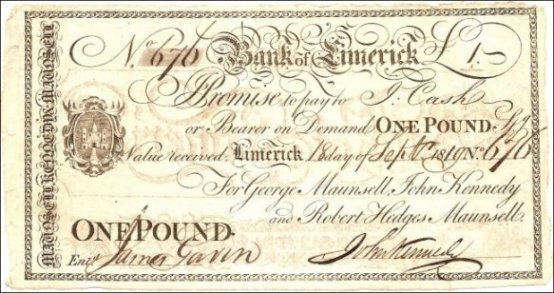 No. 676 Bank of Limerick £1.-
I Promise to pay to J: Cash
or Bearer on Demand ONE POUND
Value received. Limerick 18 day of Septr. 1819 No. 676
For George Maunsell, John Kennedy
and Robert Hedges Maunsell.
ONE POUND.
Entd. James Gavin John Kennedy